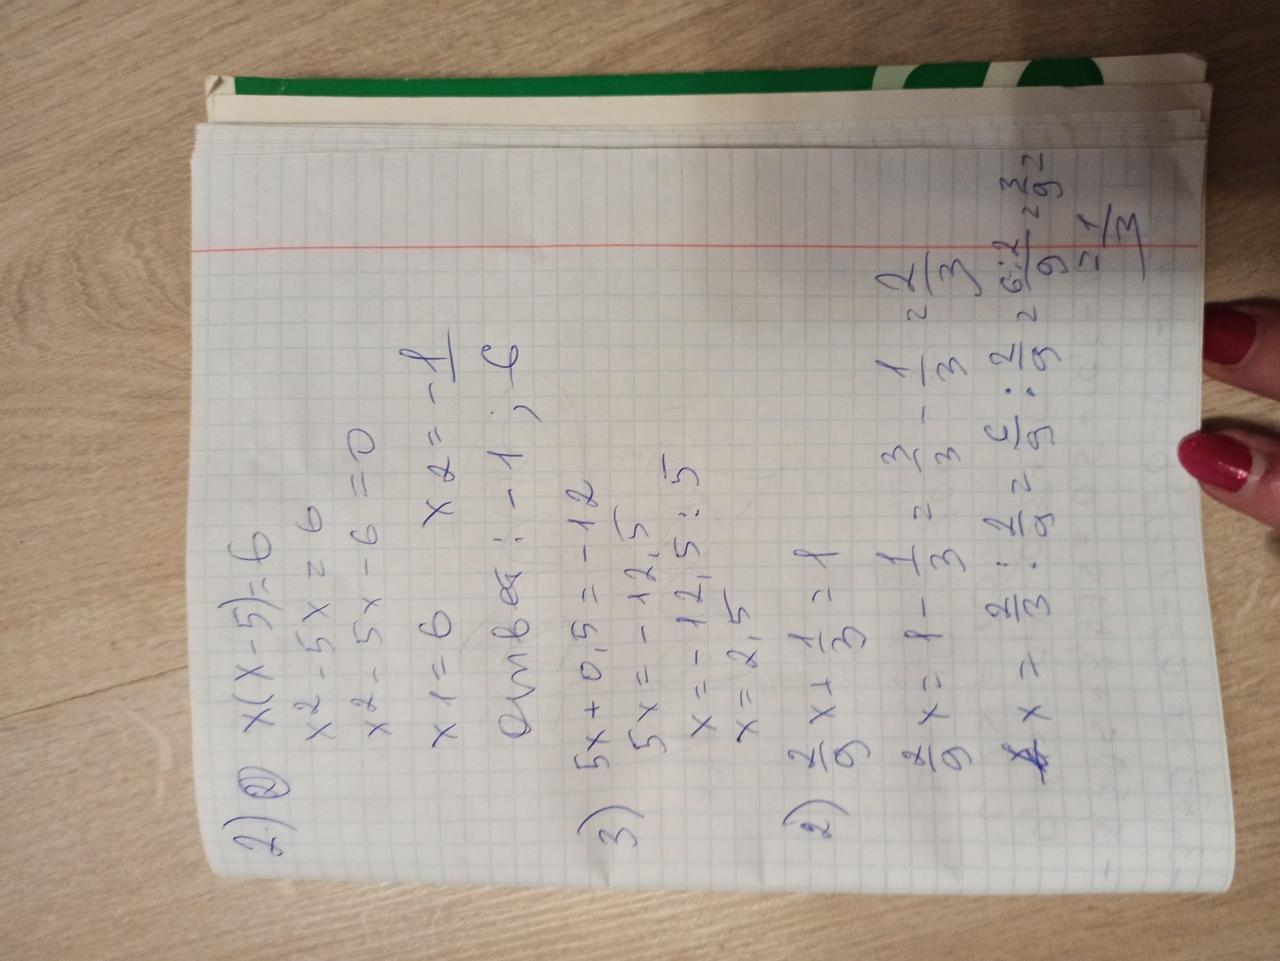 2) 2 x(x-5)=6
x2-5x=6
x2-5x-6=0
x1=6 x2=-1
Ответ: -1; 6
3) 5x+0,5=-12
5x=-12,5
x=-12,5:5
x=2,5
2) 2/9 x+1/3=1
2/9 x=1-1/3=3/3-1/3=2/3
x=2/3:2/9=6/9:2/9=6:2/9=3/9=
=1/3